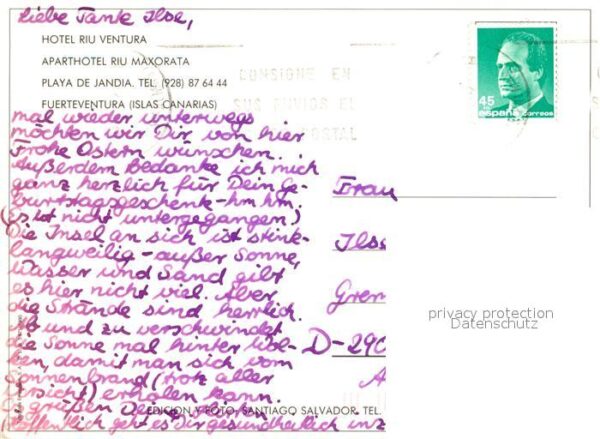 Liebe Tante Ilse,
HOTEL RIU VENTURA
APARTHOTEL RIU MAXORATA
PLAYA DE JANDIA. TEL. (928) 87 64 44
FUERTEVENTURA (ISLAS CANARIAS)
CONSIGNE EN
SUS ENVIOS EL
POSTAL
45
españa correos
mal wieder unterwegs
möchten wir Dir von hier
Frohe Ostern wünschen.
Außerdem bedanke ich mich
ganz herzlich für Dein Ge-
burtstagsgeschenk-hm hm.
(Es ist nicht untergegangen)
Die Insel an sich ist stink-
langweilig - außer Sonne,
Wasser und Sand gibt
es hier nicht viel. Aber
die Strände sind herrlich.
Ab und zu verschwindet
die Sonne mal hinter Wol-
ken, damit man sich vom
Sonnenbrand (trotz aller
Vorsicht) erholen kann.
Es grüßen Deine
Hoffentlich geht es Dir gesundheitlich
EDICION Y FOTO: SANTIAGO SALVADOR. TEL.
Frau
Ilse
Gren
D-290
privacy protection
Datenschutz